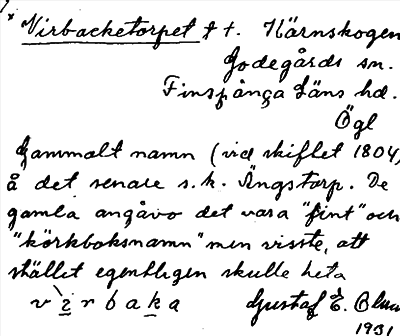 * Virbacketorpet t t. Kärnskogen
Godegårds sn.
Finspånga Läns hd.
Ögl
Gammalt namn (vid skiftet 1804)
å det senare s.k. Ängstorp. De
gamla angåvo det vara "fint" och
"körkboksnamn" men visste, att
stället egentligen skulle heta
virbaka Gustaf E. Blum
1931